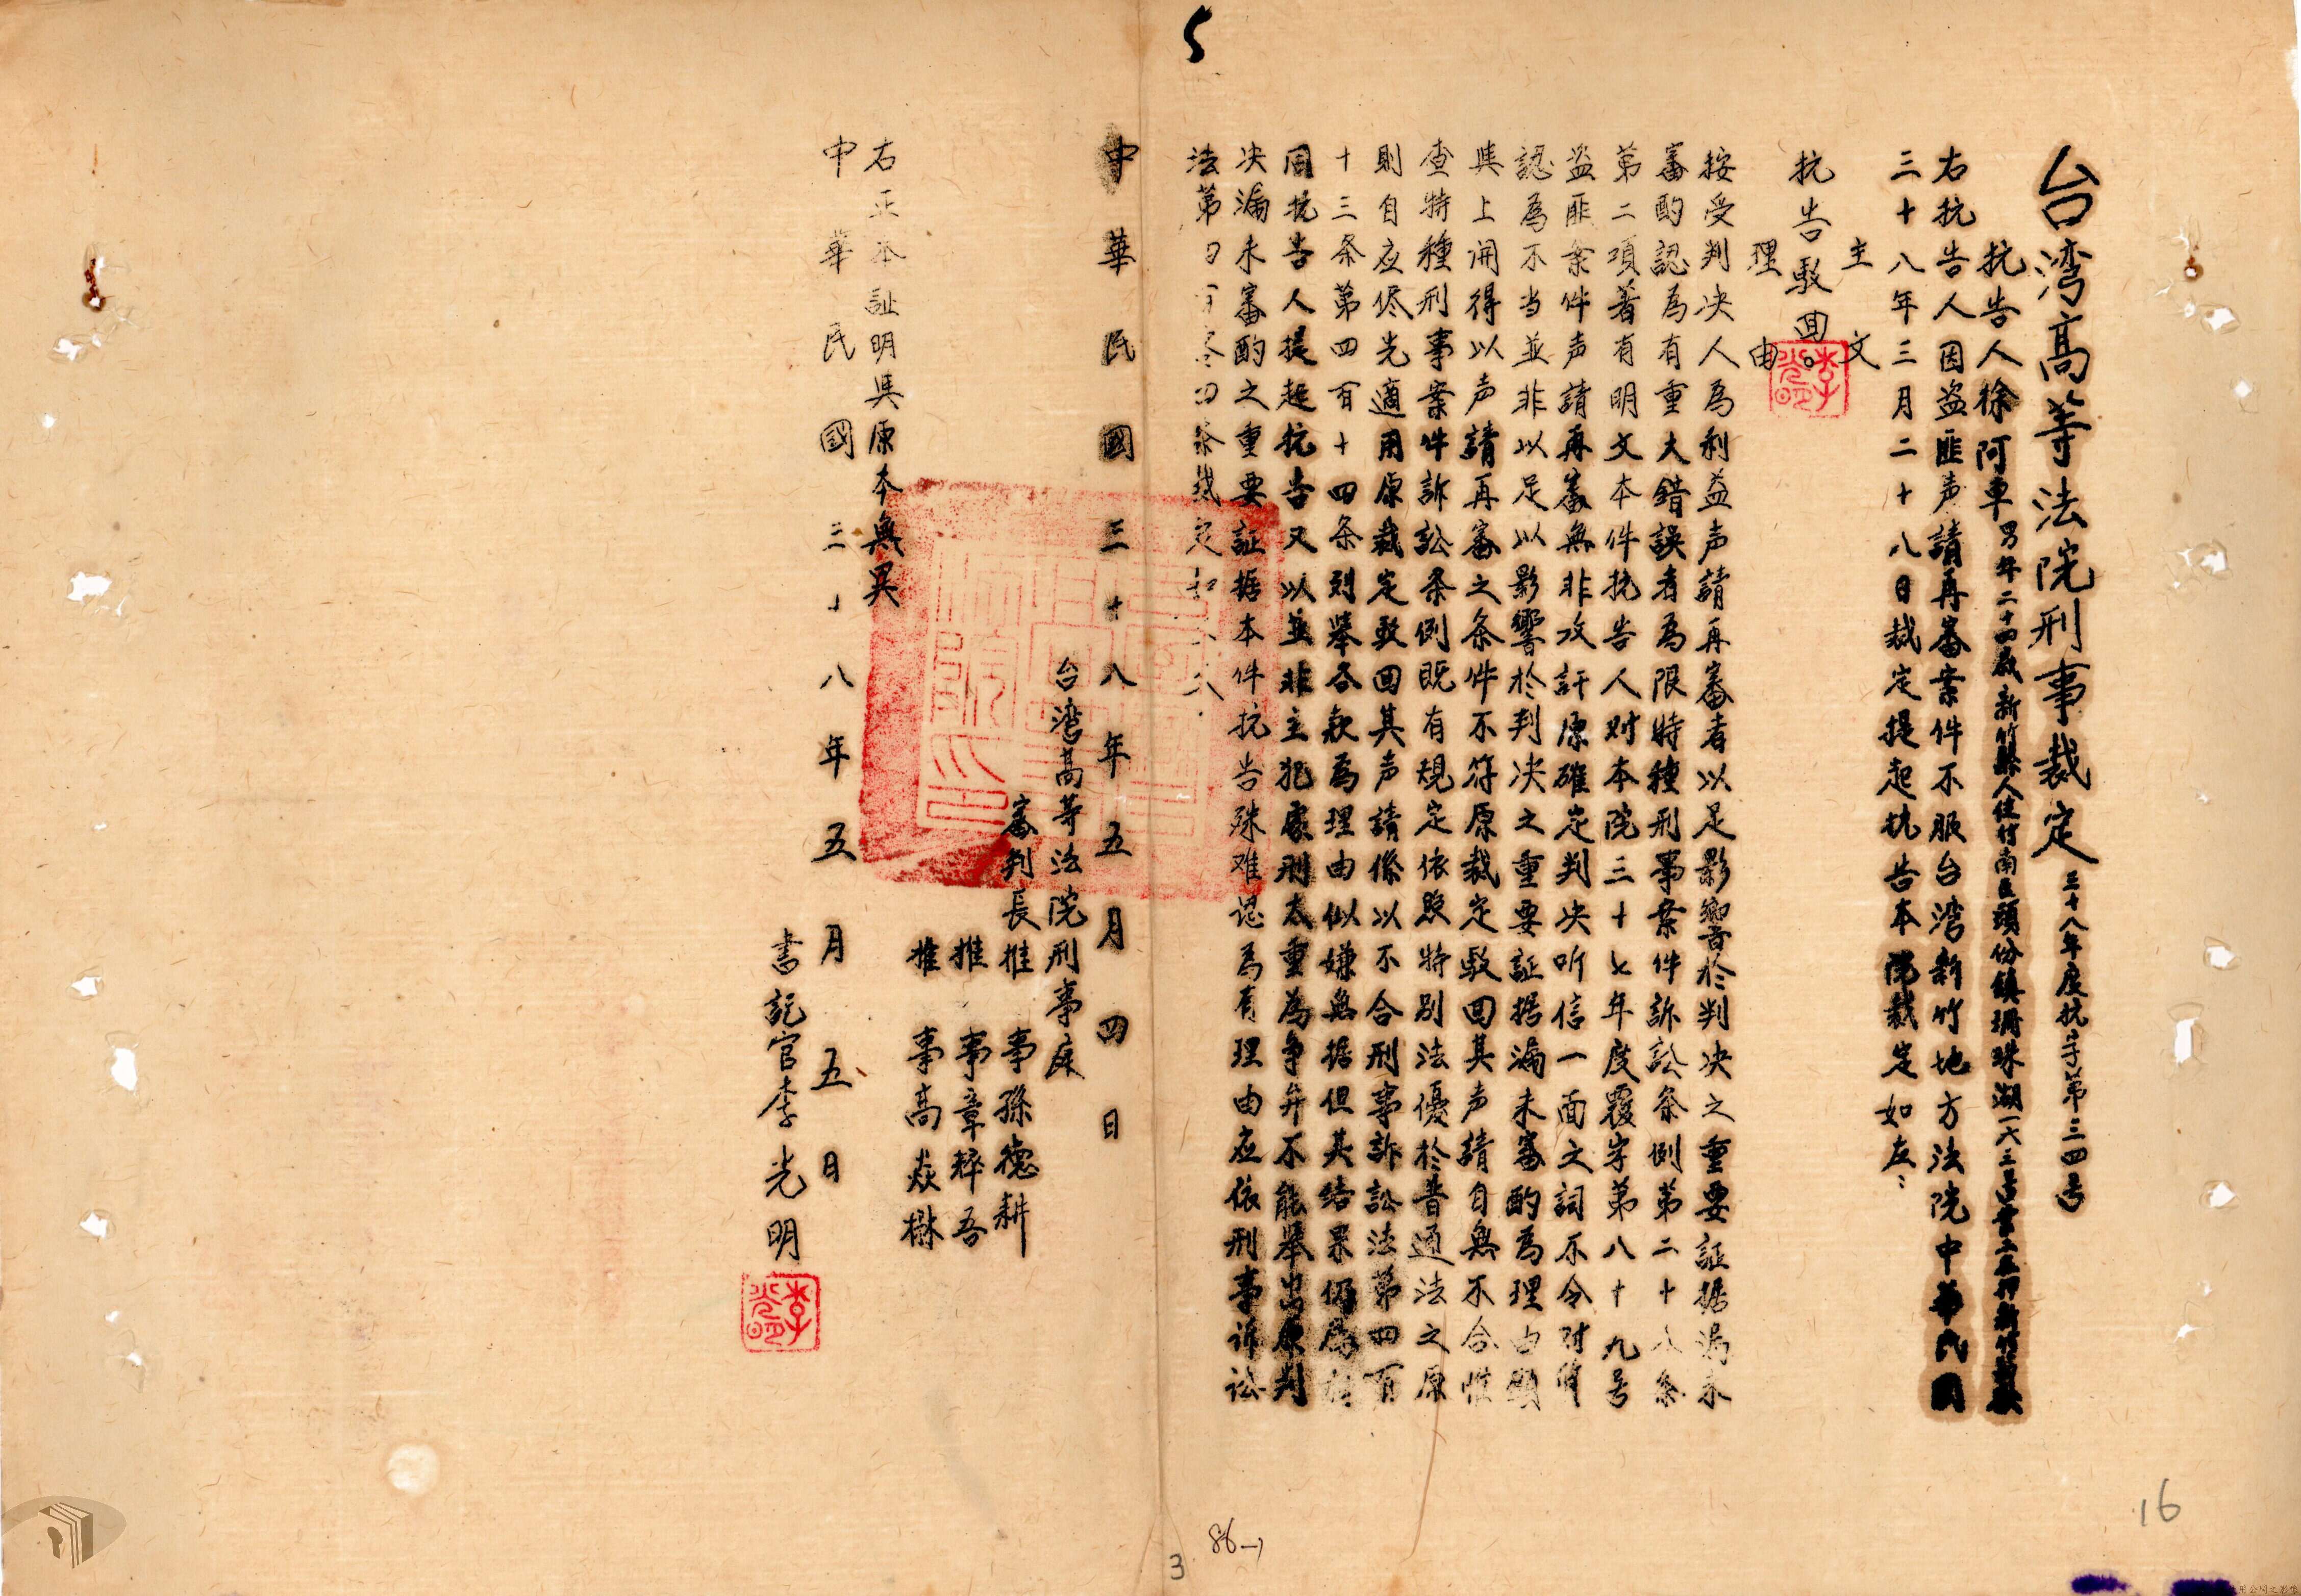 5
台湾高等法院刑事裁定 三十八年度抗字第三四号
抗告人徐阿車 男年二十四歳新竹縣人住竹南區頭份鎮珊珠湖一六三号業工在押新竹
右抗告人因盗匪声請再審案件不服台湾新竹地方法院中華民國
三十八年三月二十八日裁定提起抗告本院裁定如左：
主文
抗告駁回。
理由
按受判决人為利益声請再審者以足影響於判决之重要証据漏未
審酌認為有重大錯誤者為限特種刑事案件訴訟条例第二十八条
第二項著有明文本件抗告人对本院三十七年度覆字第八十九号
盗匪案件声請再審無非攻訐原確定判决听信一面之詞不令对質
認為不当並非以足以影響於判决之重要証据漏未審酌為理由顕
與上開得以声請再審之条件不符原裁定駁回其声請自無不合惟
查特種刑事案件訴訟条例既有規定依照特別法優於普通法之原
則自应侭先適用原裁定駁回其声請係以不合刑事訴訟法第四百
十三条第四百十四条列舉各款為理由似嫌無据但其結果仍属相
同抗告人提起抗告又以並非主犯處刑太重為争弁不能舉出原判
决漏未審酌之重要証据本件抗告殊难認為有理由应依刑事诉讼
法第四百零四条裁定如主文
中華民國三十八年五月四日
台湾高等法院刑事庭
審判長推事孫德耕
推事章粹吾
推事高焱楙
右正本証明與原本無異
中華民國三十八年五月五日
書記官李光明
李光明
李光明
16
86→
3